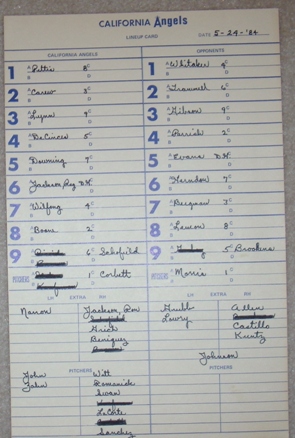 CALIFORNIA Angels
LINEUP CARD DATE 5-24-'84
CALIFORNIA ANGELS OPPONENTS
1 A Pettis 8 C 1 A Whitaker 4 C
B D B D
2 A Carew 3 C 2 A Trammell 6 C
B D B D
3 A Lynn 9 C 3 A Gibson 9 C
B D B D
4 A DeCinces 5 C 4 A Parrish 2 C
B D B D
5 A Downing 7 C 5 A Evans DH C
B D B D
6 Jackson, Reg DH 6 A Herndon 7 C
B D B D
7 A Wilfong 4 C 7 A Bergman 3 C
B D B D
8 A Boone 2 C 8 A Lemon 8 C
B D B D
9 6 C Schofield 9 5 C Brookens
PITCHERS 1 C Corbett PITCHERS A Morris 1 C
LH EXTRA RH LH EXTRA RH
Narron Jackson, Ron Grubb Allen
Grich Lowry
Beniquez Castillo
Kuntz
Johnson
PITCHERS PITCHERS
John Witt
Zahn Romanick
Swan
LaCorte
Sanchez